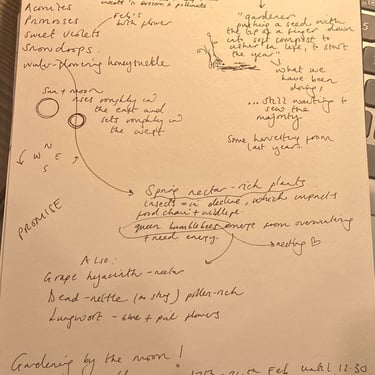 Aconites
Primroses
Sweet violets
Snowdrops.
winter-flowering honeysuckle
Feb's
birth flower
"gardener
pushing a seed with
the tip of a finger down
into soft compost to
usher in life, to start
the year"
what we
have been
doing!
... still waiting to
sow the
majority.
Some harvesting from
last years.
Sun + moon
rises roughly in
the east and
sets roughly in
the west
N
W E
S
PROMISE
Spring nectar-rich plants
insects = in decline, which impacts
food chain + wildlife.
queen bumblebees emerge from overwintering
+ need energy.
nesting
Also:
Grape hyacinth - nectar
Dead-nettle (no sting) pollen-rich
Lungwort - blue + pink flowers
Gardening by the moon!
Feb until 12:30